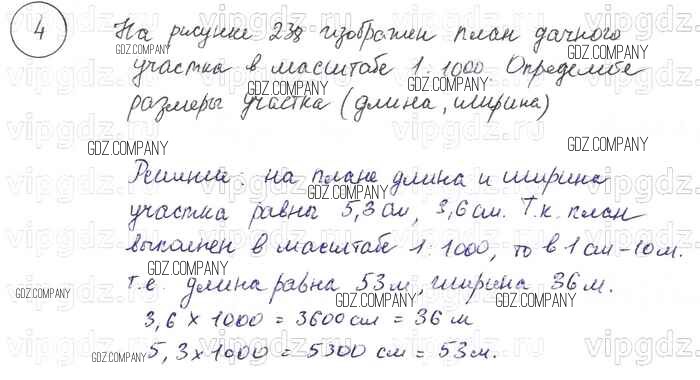 4 На рисунке 238 изображен план дачного
участка в масштабе 1:1000. Определите
размеры участка (длина, ширина)
Решение: на плане длина и ширина
участка равна 5,3 см, 3,6 см. Т.к. план
выполнен в масштабе 1:1000, то в 1 см – 10 м.
т.е. длина равна 53 м, ширина 36 м.
3,6 × 1000 = 3600 см = 36 м
5,3 × 1000 = 5300 см = 53 м.